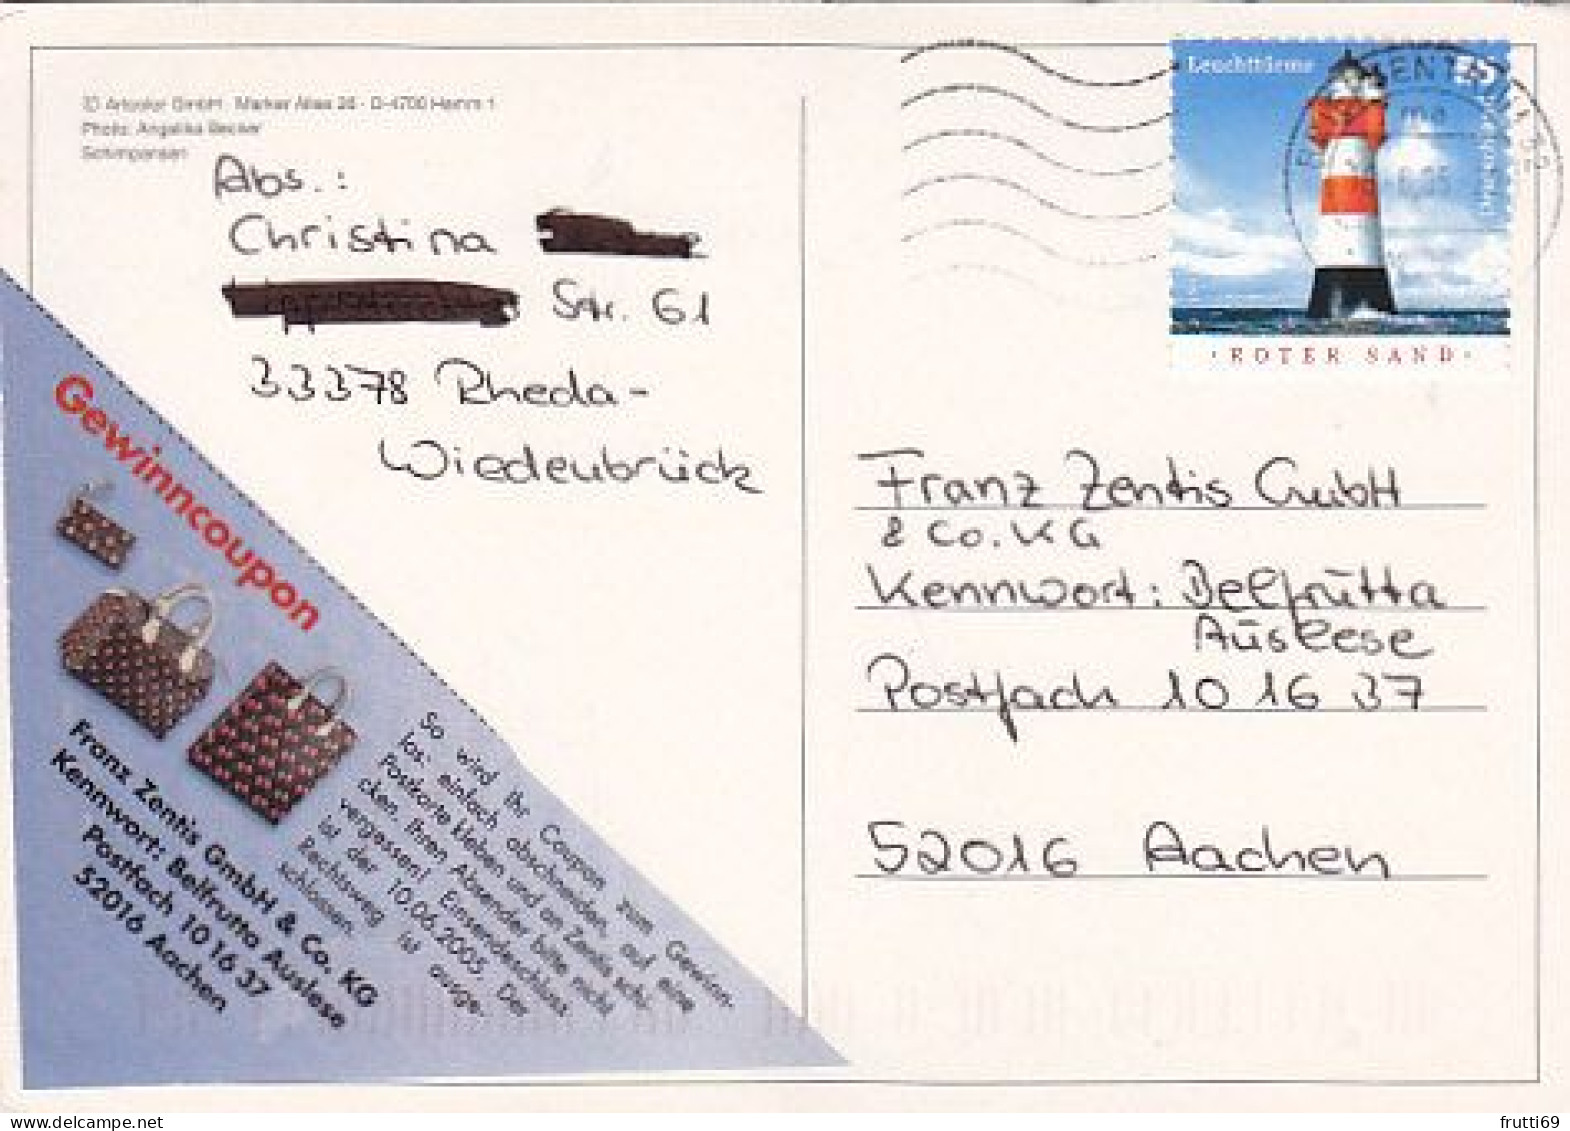 © Artcolor GmbH · Marker Allee 26 · D-4700 Hamm 1
Photo: Angelika Becker
Schimpansen
Abs.:
Christina
Str. 61
33378 Rheda-
Wiedenbrück
Leuchttürme
55
Deutschland
ROTER SAND
Franz Zentis GmbH
& Co. KG
Kennwort: Belfrutta
Auslese
Postfach 10 16 37
52016 Aachen
Gewinncoupon
Franz Zentis GmbH & Co. KG
Kennwort: Belfrutta Auslese
Postfach 10 16 37
52016 Aachen
So wird Ihr Coupon zum Gewinn-
los: einfach abschneiden, auf eine
Postkarte kleben und an Zentis schi-
cken. Ihren Absender bitte nicht
vergessen! Einsendeschluss
ist der 10.06.2005. Der
Rechtsweg ist ausge-
schlossen.
frutti69